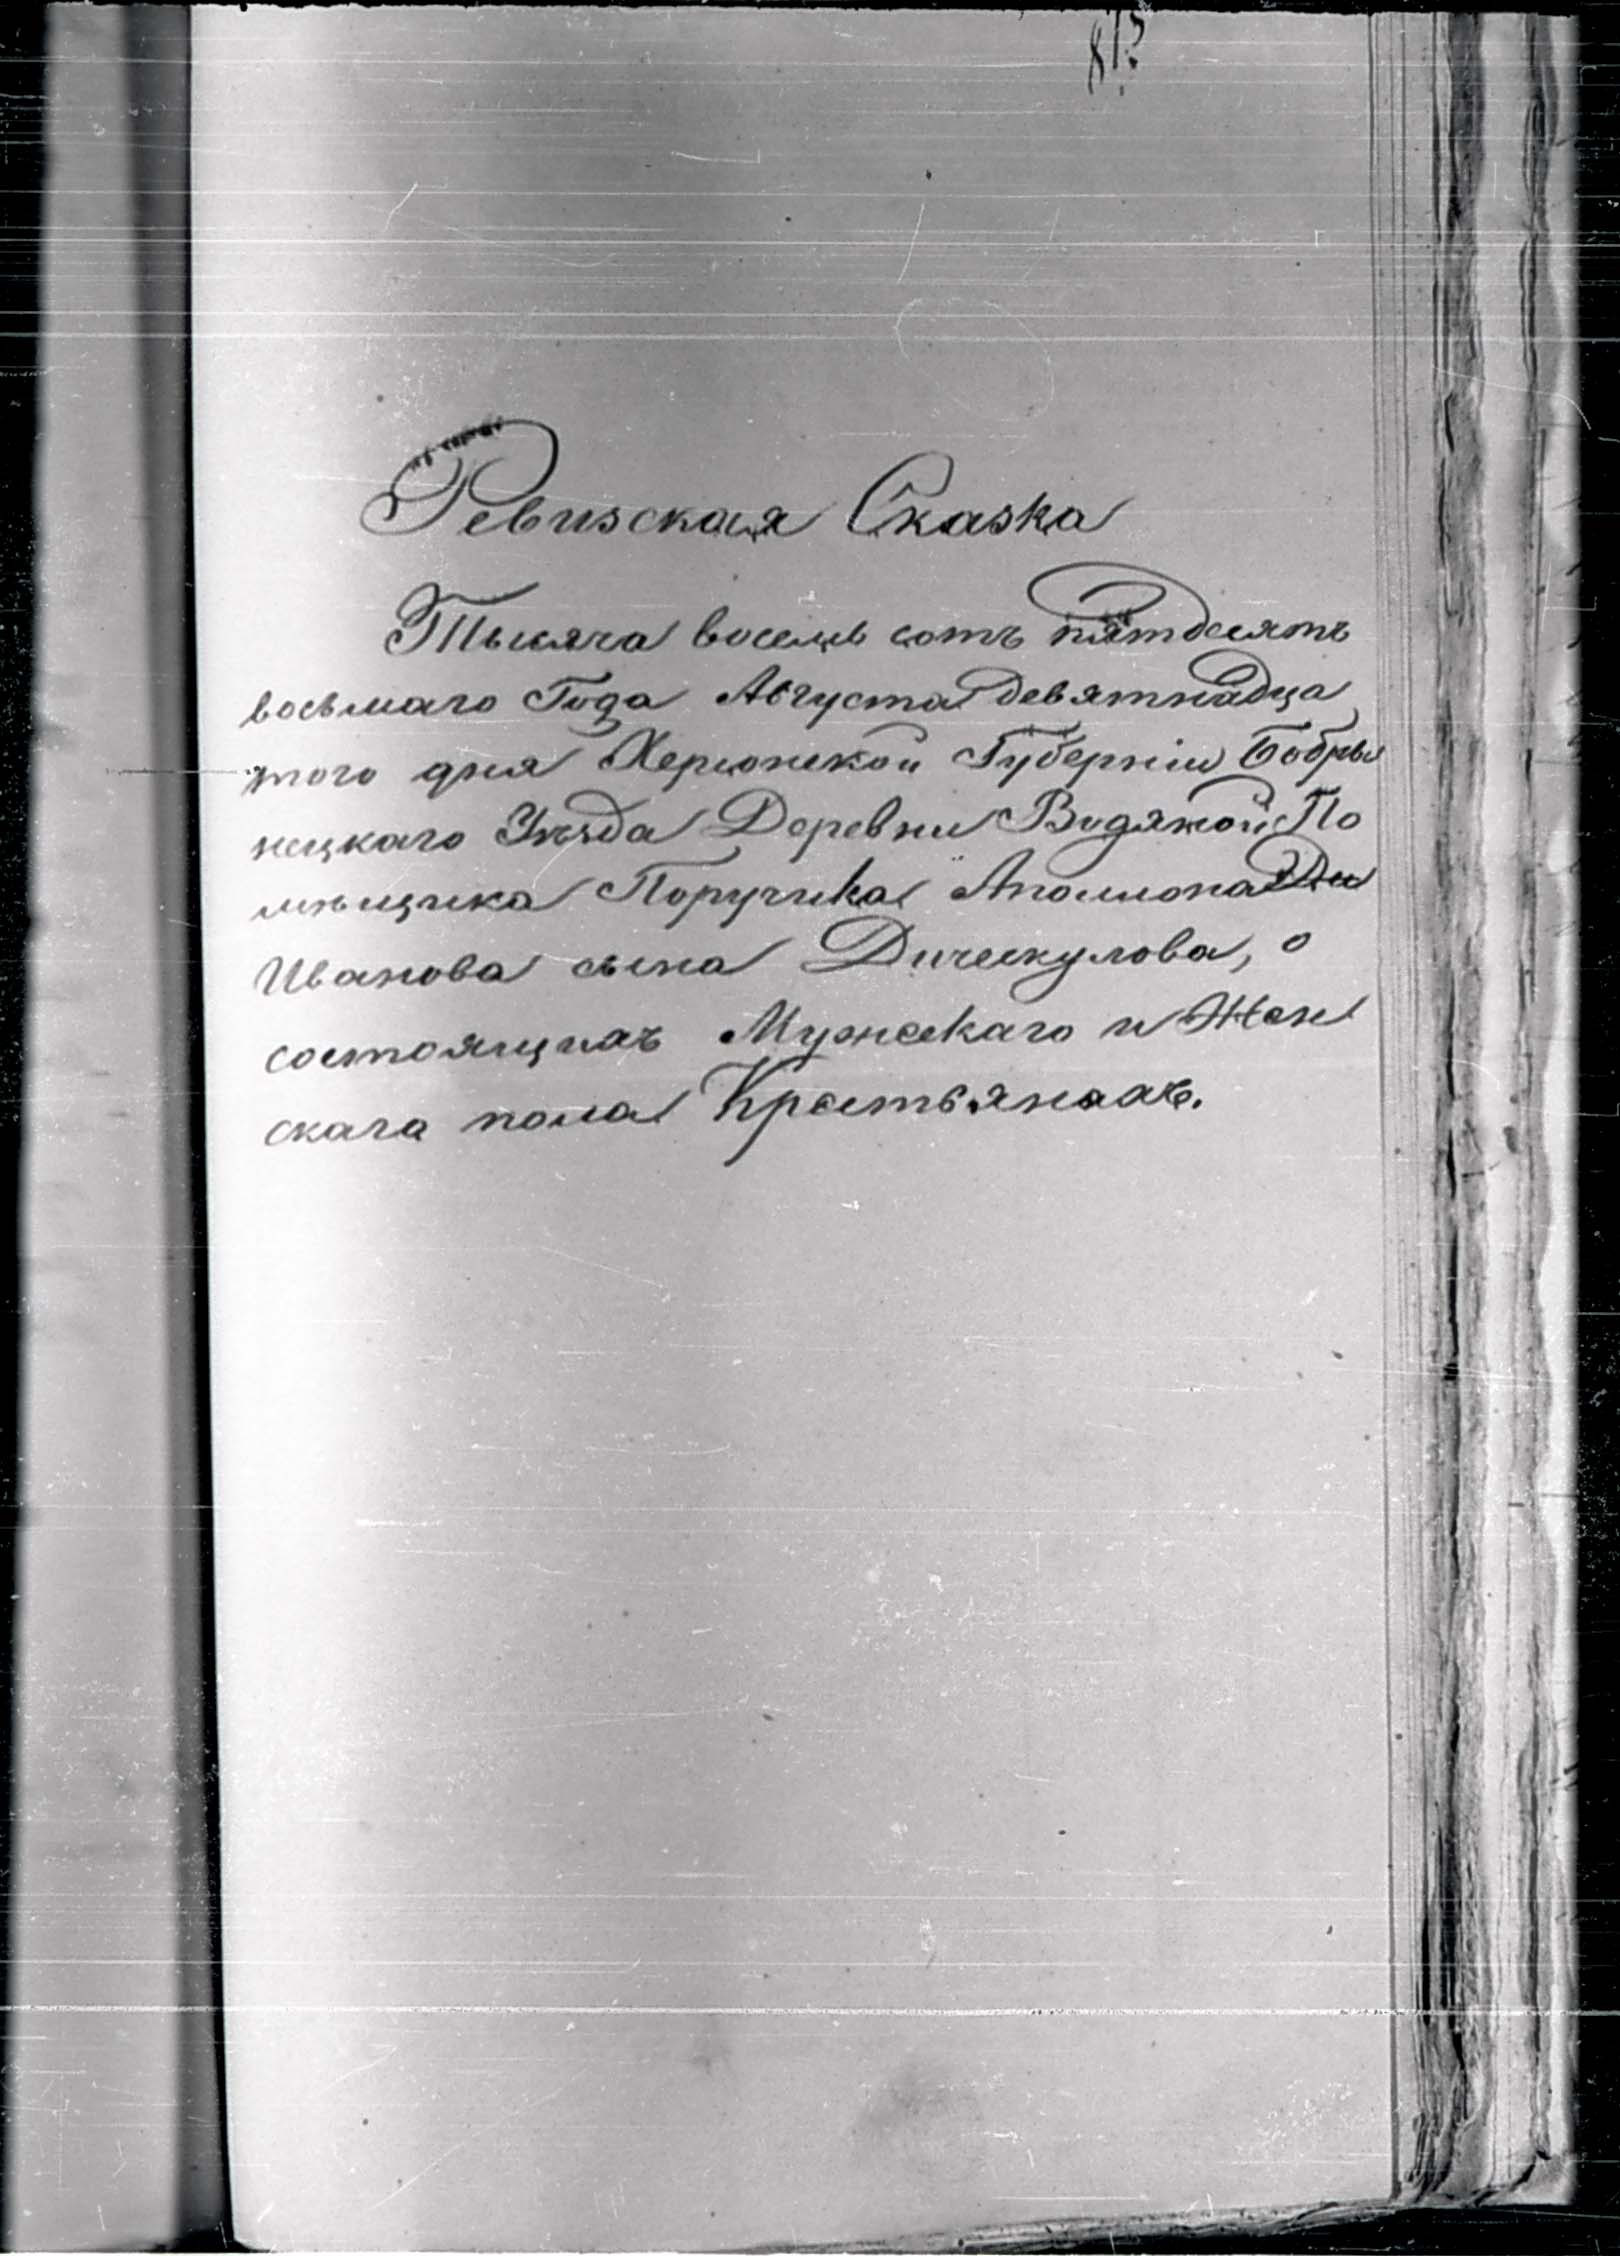 873.
Ревизская Сказка
Тысяча восемь сотъ пятдесятъ
восьмаго Года Августа девятнадца
того дня Херсонской Губерніи Бобры
нецкаго Уѣзда Деревни Водяной По
мѣщика Поручика Аполлона
Иванова сына Дическулова, о
состоящихъ Мужескаго и Жен
скаго пола Крестьянахъ.